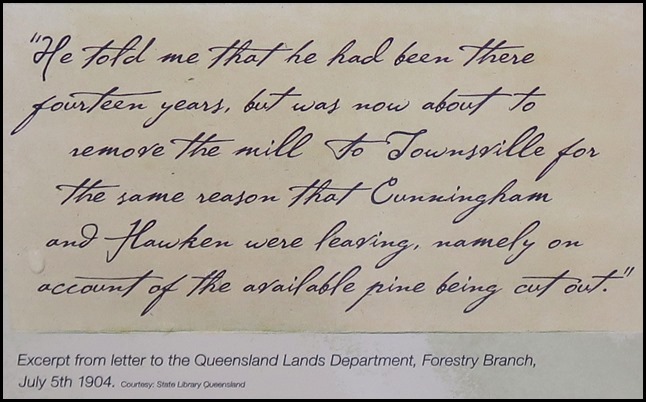 "He told me that he had been there
fourteen years, but was now about to
remove the mill to Townsville for
the same reason that Cunningham
and Hawken were leaving, namely on
account of the available pine being cut out."
Excerpt from letter to the Queensland Lands Department, Forestry Branch,
July 5th 1904. Courtesy: State Library Queensland